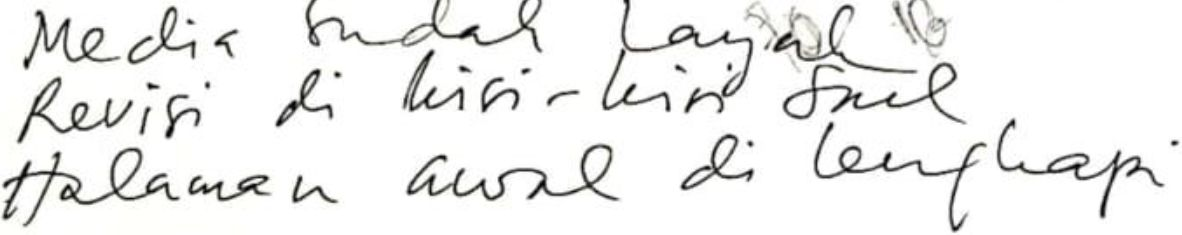 Media sudah Layak
Revisi di kisi-kisi Soal
Halaman awal di lengkapi